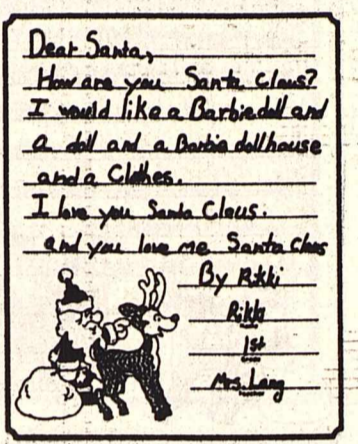 Dear Santa,
How are you Santa Claus?
I would like a Barbie doll and
a doll and a Barbie dollhouse
and a Clothes.
I love you Santa Claus.
and you love me Santa Claus
By Rikki
Rikki
1st
Grade
Mrs. Lang
Teacher